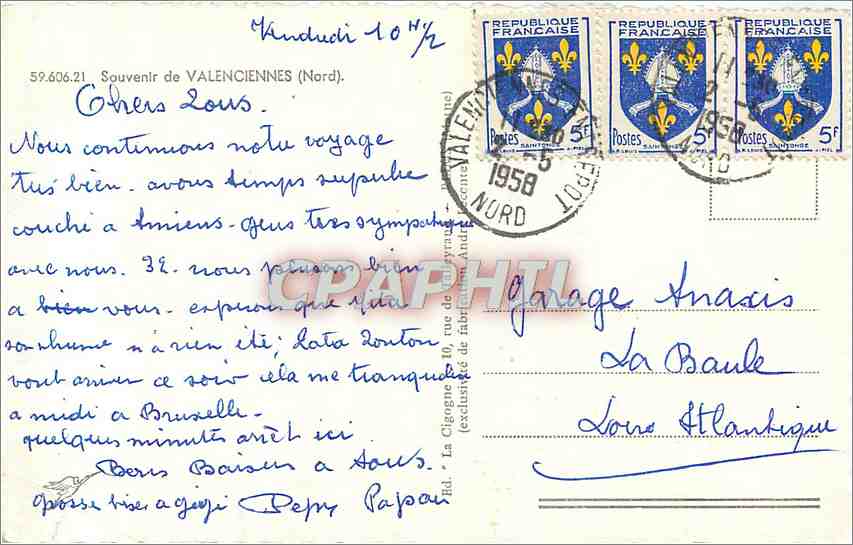 Vendredi 10 H 1/2
59.606.21 Souvenir de VALENCIENNES (Nord).
Chers Tous.
Nous continuons notre voyage
trés bien - avons temps superbe
couché a Amiens - gens tres sympathique
avec nous. nous pensons bien
a bien vous - esperons que
son rhume n'a rien été; Tata Tonton
vont arriver ce soir cela me tranquilise
a midi a Bruxelle -
quelques minutes arrêt ici
Bons Baisers a tous.
grosse bises a gigi Pepy Papau
Ed. - La Cigogne - 10, rue de Talleyrand -
(exclusivité de fabrication André Leconte)
REPUBLIQUE FRANÇAISE
Postes 5F
SAINTONGE
REPUBLIQUE FRANÇAISE
Postes 5F
SAINTONGE
REPUBLIQUE FRANÇAISE
Postes 5F
SAINTONGE
1958
NORD
1958
NORD
CPAPHIL
Garage Anaxis
La Baule
Loire Atlantique